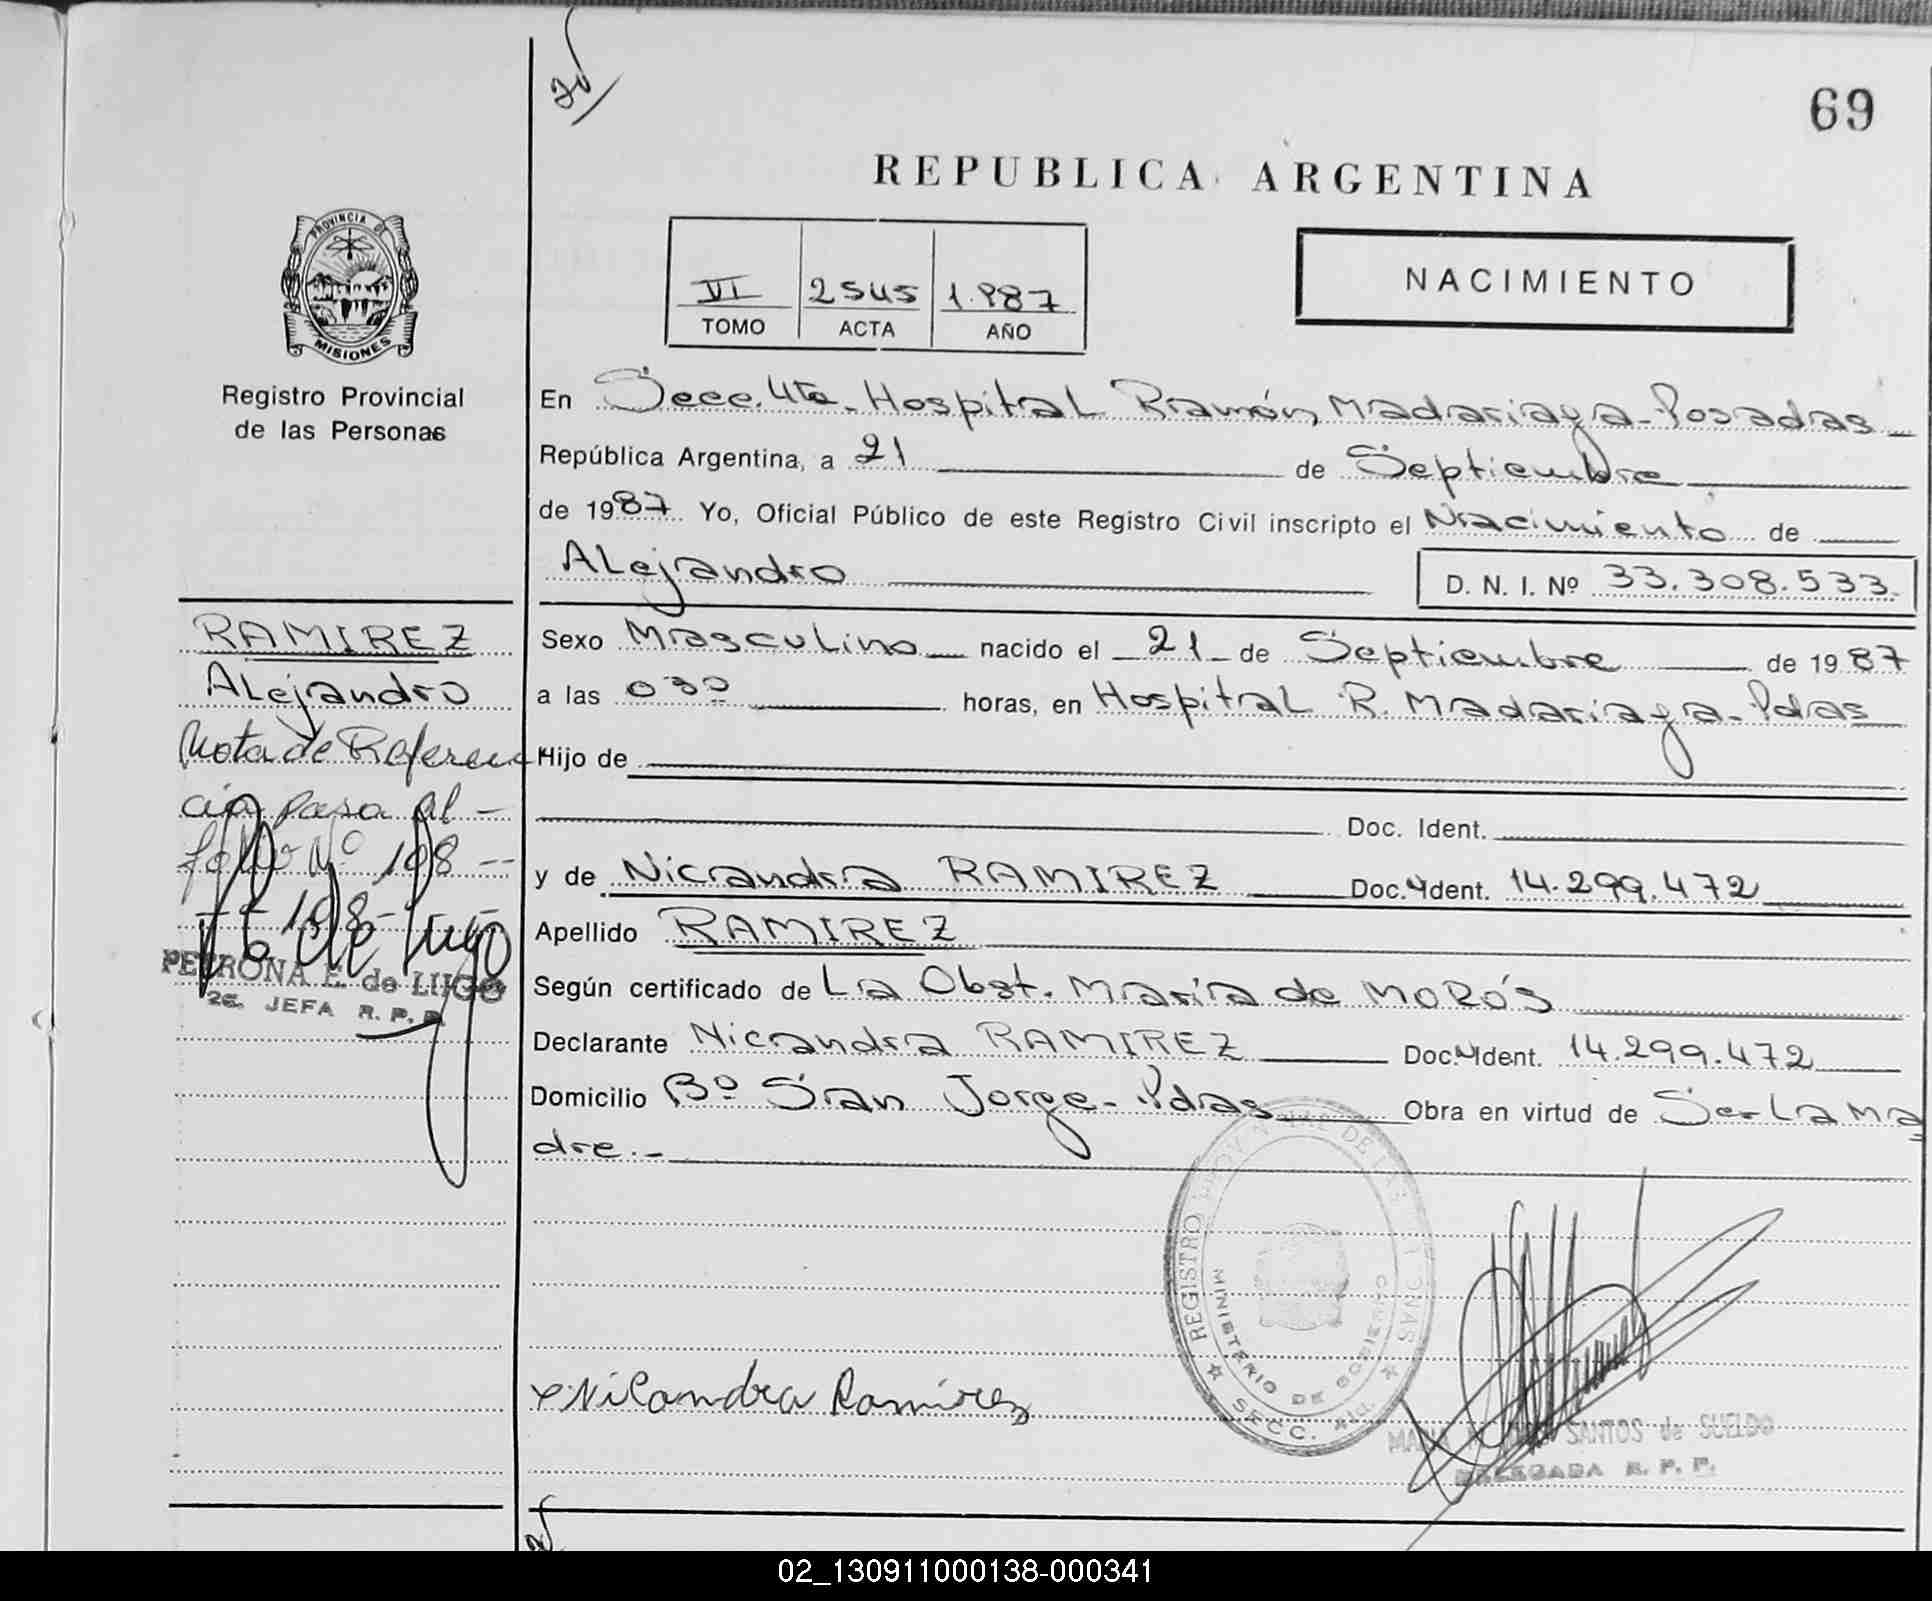 69
REPUBLICA ARGENTINA
PROVINCIA DE
MISIONES
Registro Provincial
de las Personas
VI 2545 1.987
TOMO ACTA AÑO
NACIMIENTO
En Secc. 4ta. Hospital Ramón Madariaga - Posadas
República Argentina, a 21 de Septiembre
de 1987 Yo, Oficial Público de este Registro Civil inscripto el Nacimiento de
Alejandro D. N. I. Nº 33.308.533.
Sexo Masculino nacido el 21 de Septiembre de 1987
a las 030 horas, en Hospital R. Madariaga - Pdas
Hijo de
Doc. Ident.
y de Nicandra RAMIREZ Doc. Ident. 14.299.472
Apellido RAMIREZ
Según certificado de La Obst. María de MoRós
Declarante Nicandra RAMIREZ Doc. Ident. 14.299.472
Domicilio Bº San Jorge - Pdas Obra en virtud de Ser La Ma
dre.-
RAMIREZ
Alejandro
Nota de Referen
cia pasa al -
folio Nº 198 --
-- 198 --
P. E. de Lugo
PETRONA E. de LUGO
2a. JEFA R. P. P.
REGISTRO PROVINCIAL DE LAS PERSONAS
MINISTERIO DE GOBIERNO
SECC. 4ta.
x Nicandra Ramirez
SANTOS de SUELDO
DELEGADA R. P. P.
02_130911000138-000341